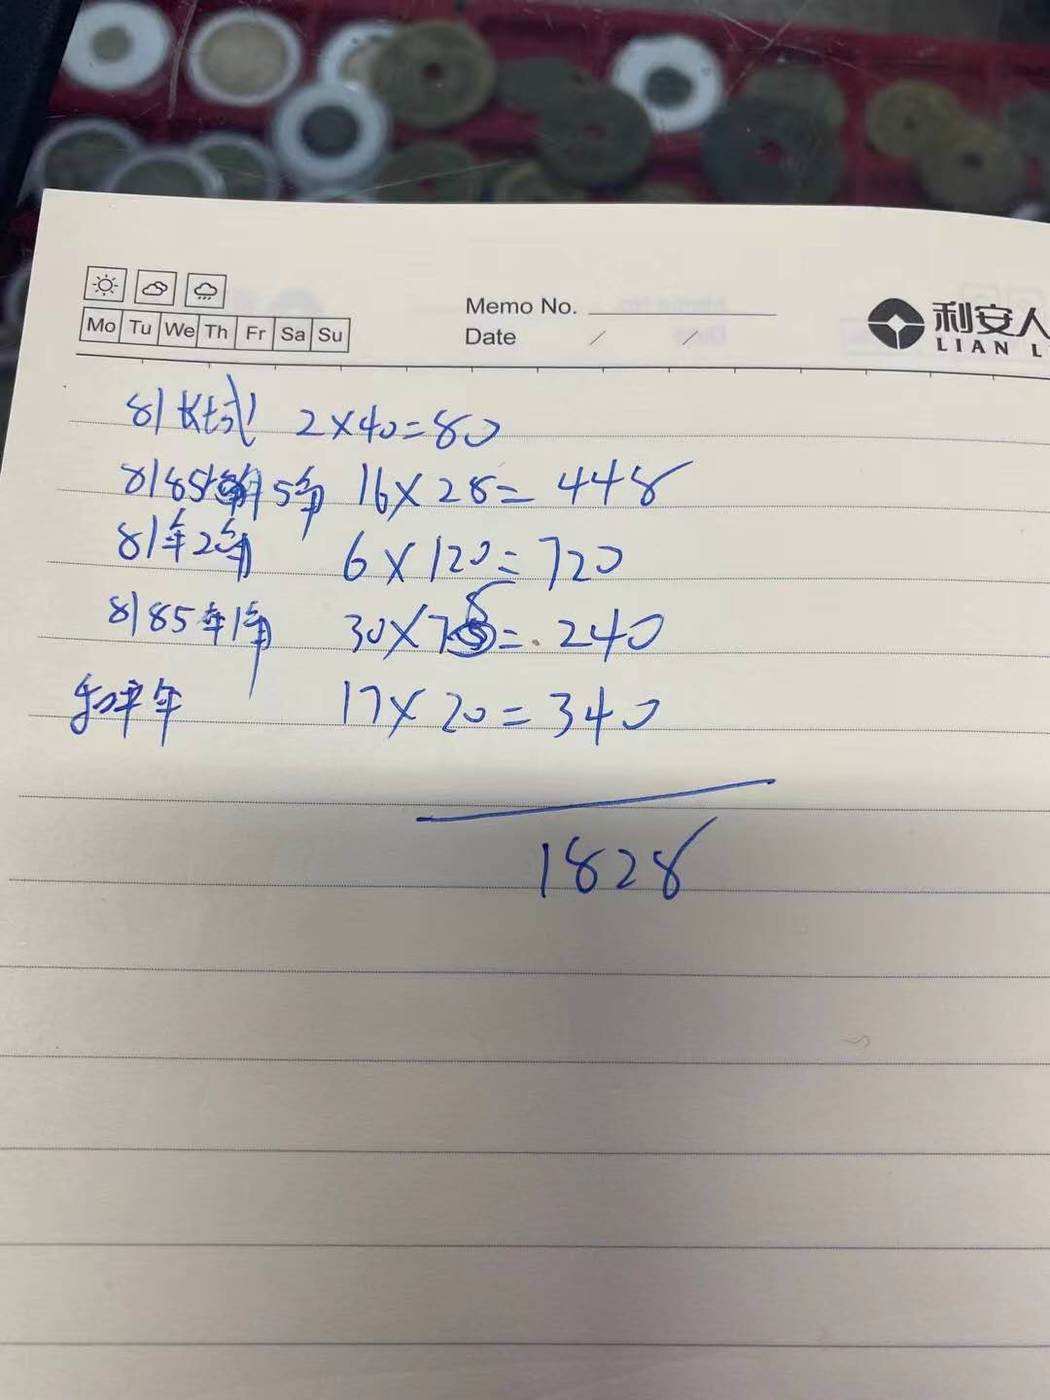 Mo Tu We Th Fr Sa Su
Memo No.
Date / /
利安人
LIAN L
81长城 2×40=80
8185年 5角 16×28=448
81年2角 6×120=720
8185年1角 30×8=240
和平年 17×20=340
1828